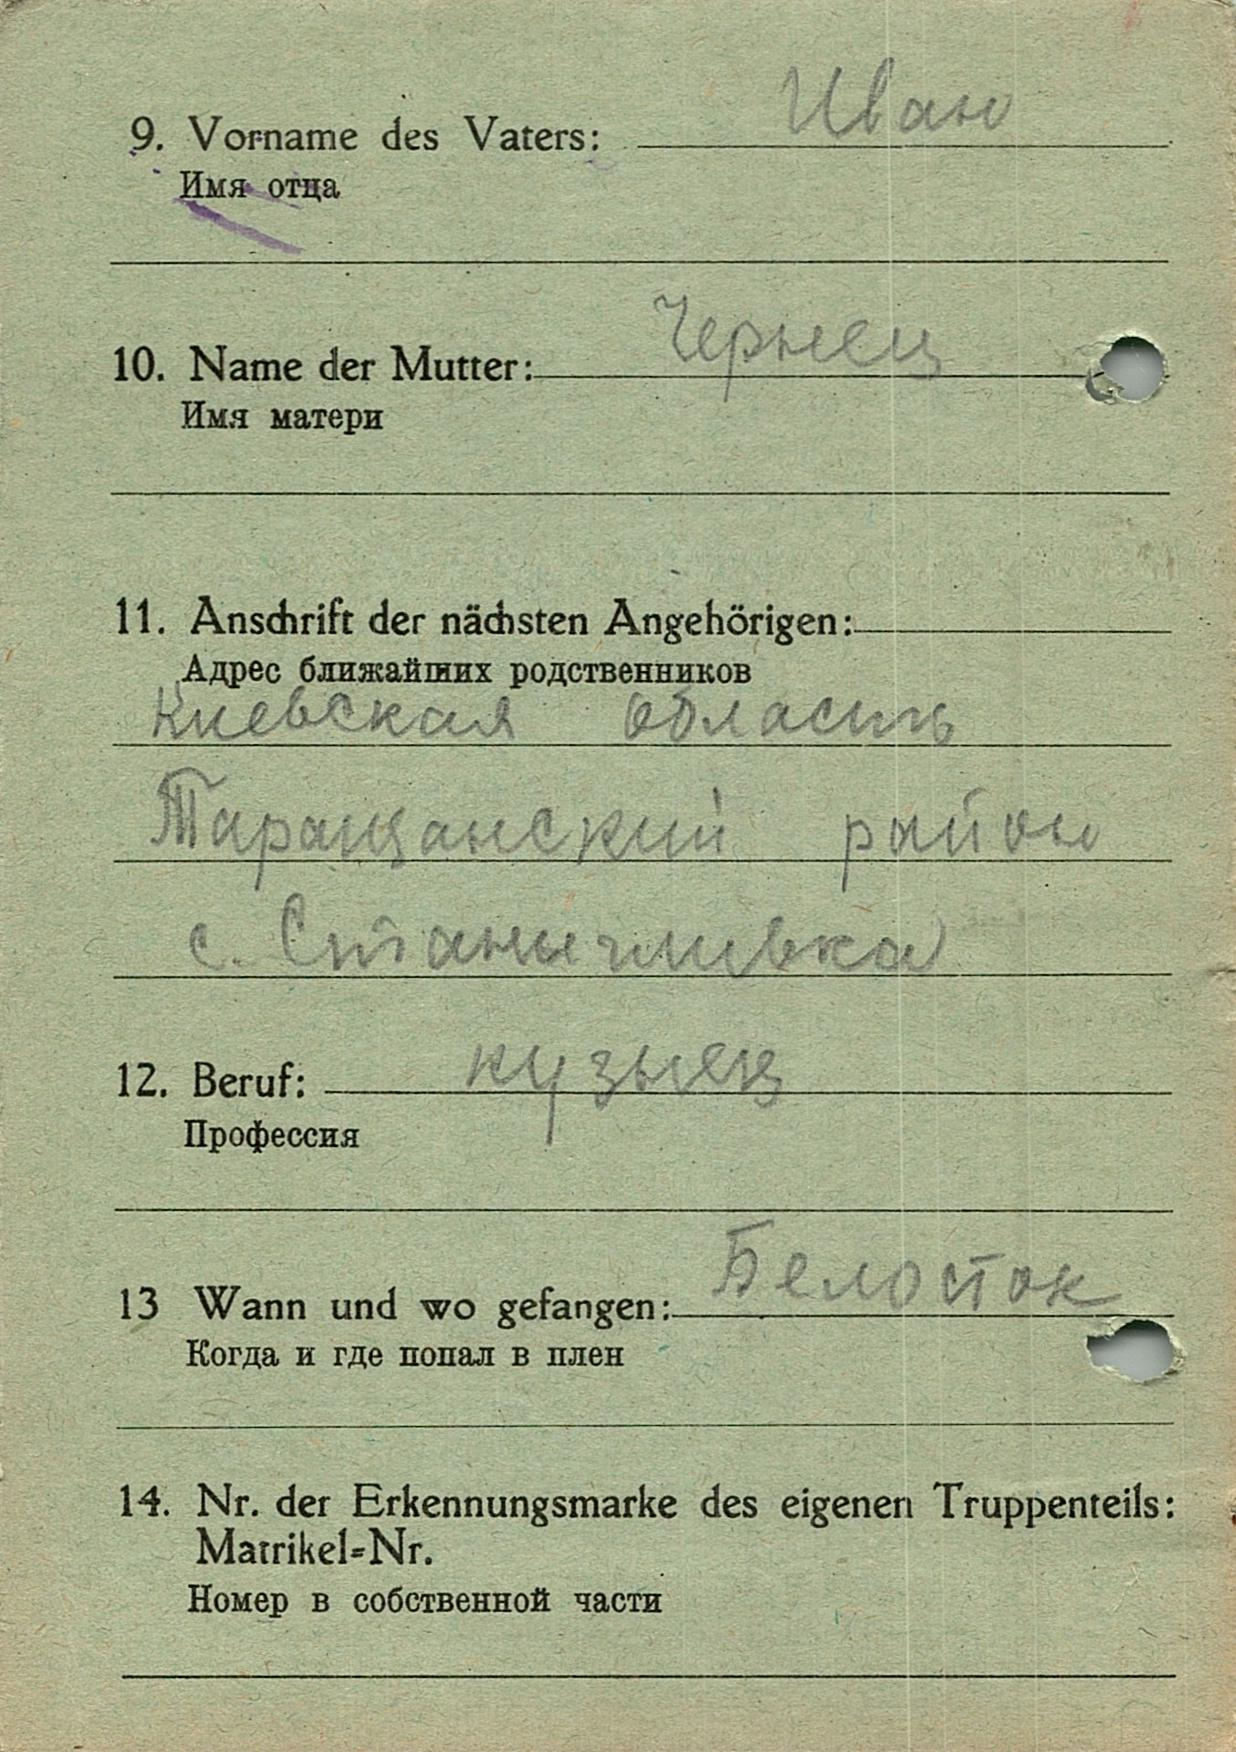 9. Vorname des Vaters: Иван
Имя отца
10. Name der Mutter: Чернец
Имя матери
11. Anschrift der nächsten Angehörigen:
Адрес ближайших родственников
Киевская область
Таращанский район
с. Станичливка
12. Beruf: кузнец
Профессия
13 Wann und wo gefangen: Белосток
Когда и где попал в плен
14. Nr. der Erkennungsmarke des eigenen Truppenteils:
Matrikel-Nr.
Номер в собственной части